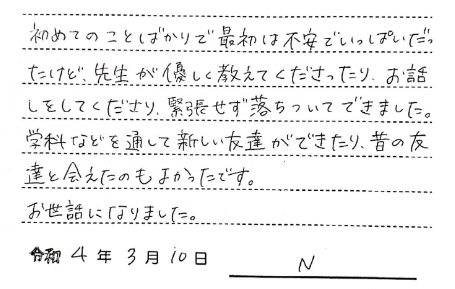 初めてのことばかりで最初は不安でいっぱいだっ
たけど、先生が優しく教えてくださったり、お話
しをしてくださり、緊張せず落ちついてできました。
学科などを通して新しい友達ができたり、昔の友
達と会えたのもよかったです。
お世話になりました。
令和 4 年 3 月 10 日 N